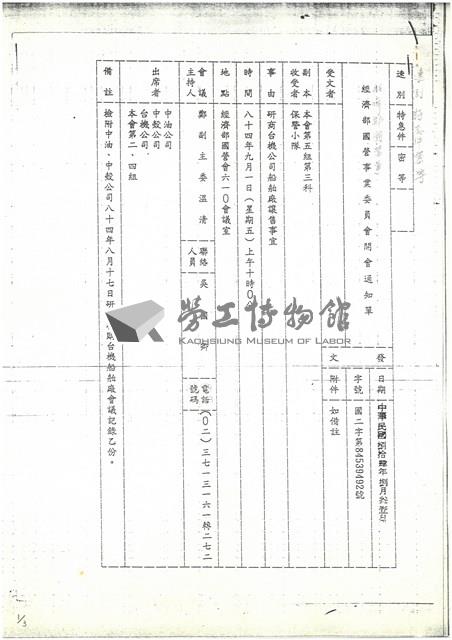 速別
特急件
密等
經濟部國營事業委員會開會通知單
受文者
副本收受者
本會第五組第三科
保警小隊
事由
研商台機公司船舶廠讓售事宜
時間
八十四年九月一日(星期五)上午十時
地點
經濟部國營會六一〇會議室
會議主持人
鄭副主委溫清
聯絡人員
電話號碼
(〇二)三七一三一六一轉二七二
出席者
中油公司
中殼公司
台機公司
本會第二、四組
備註
檢附中油、中殼公司八十四年八月十七日研
台機船舶廠會議記錄乙份。
發文
日期
中華民國捌拾肆年捌月
字號
國二字第84539492號
附件
如備註
勞工博物館
KAOHSIUNG MUSEUM OF LABOR
1/3